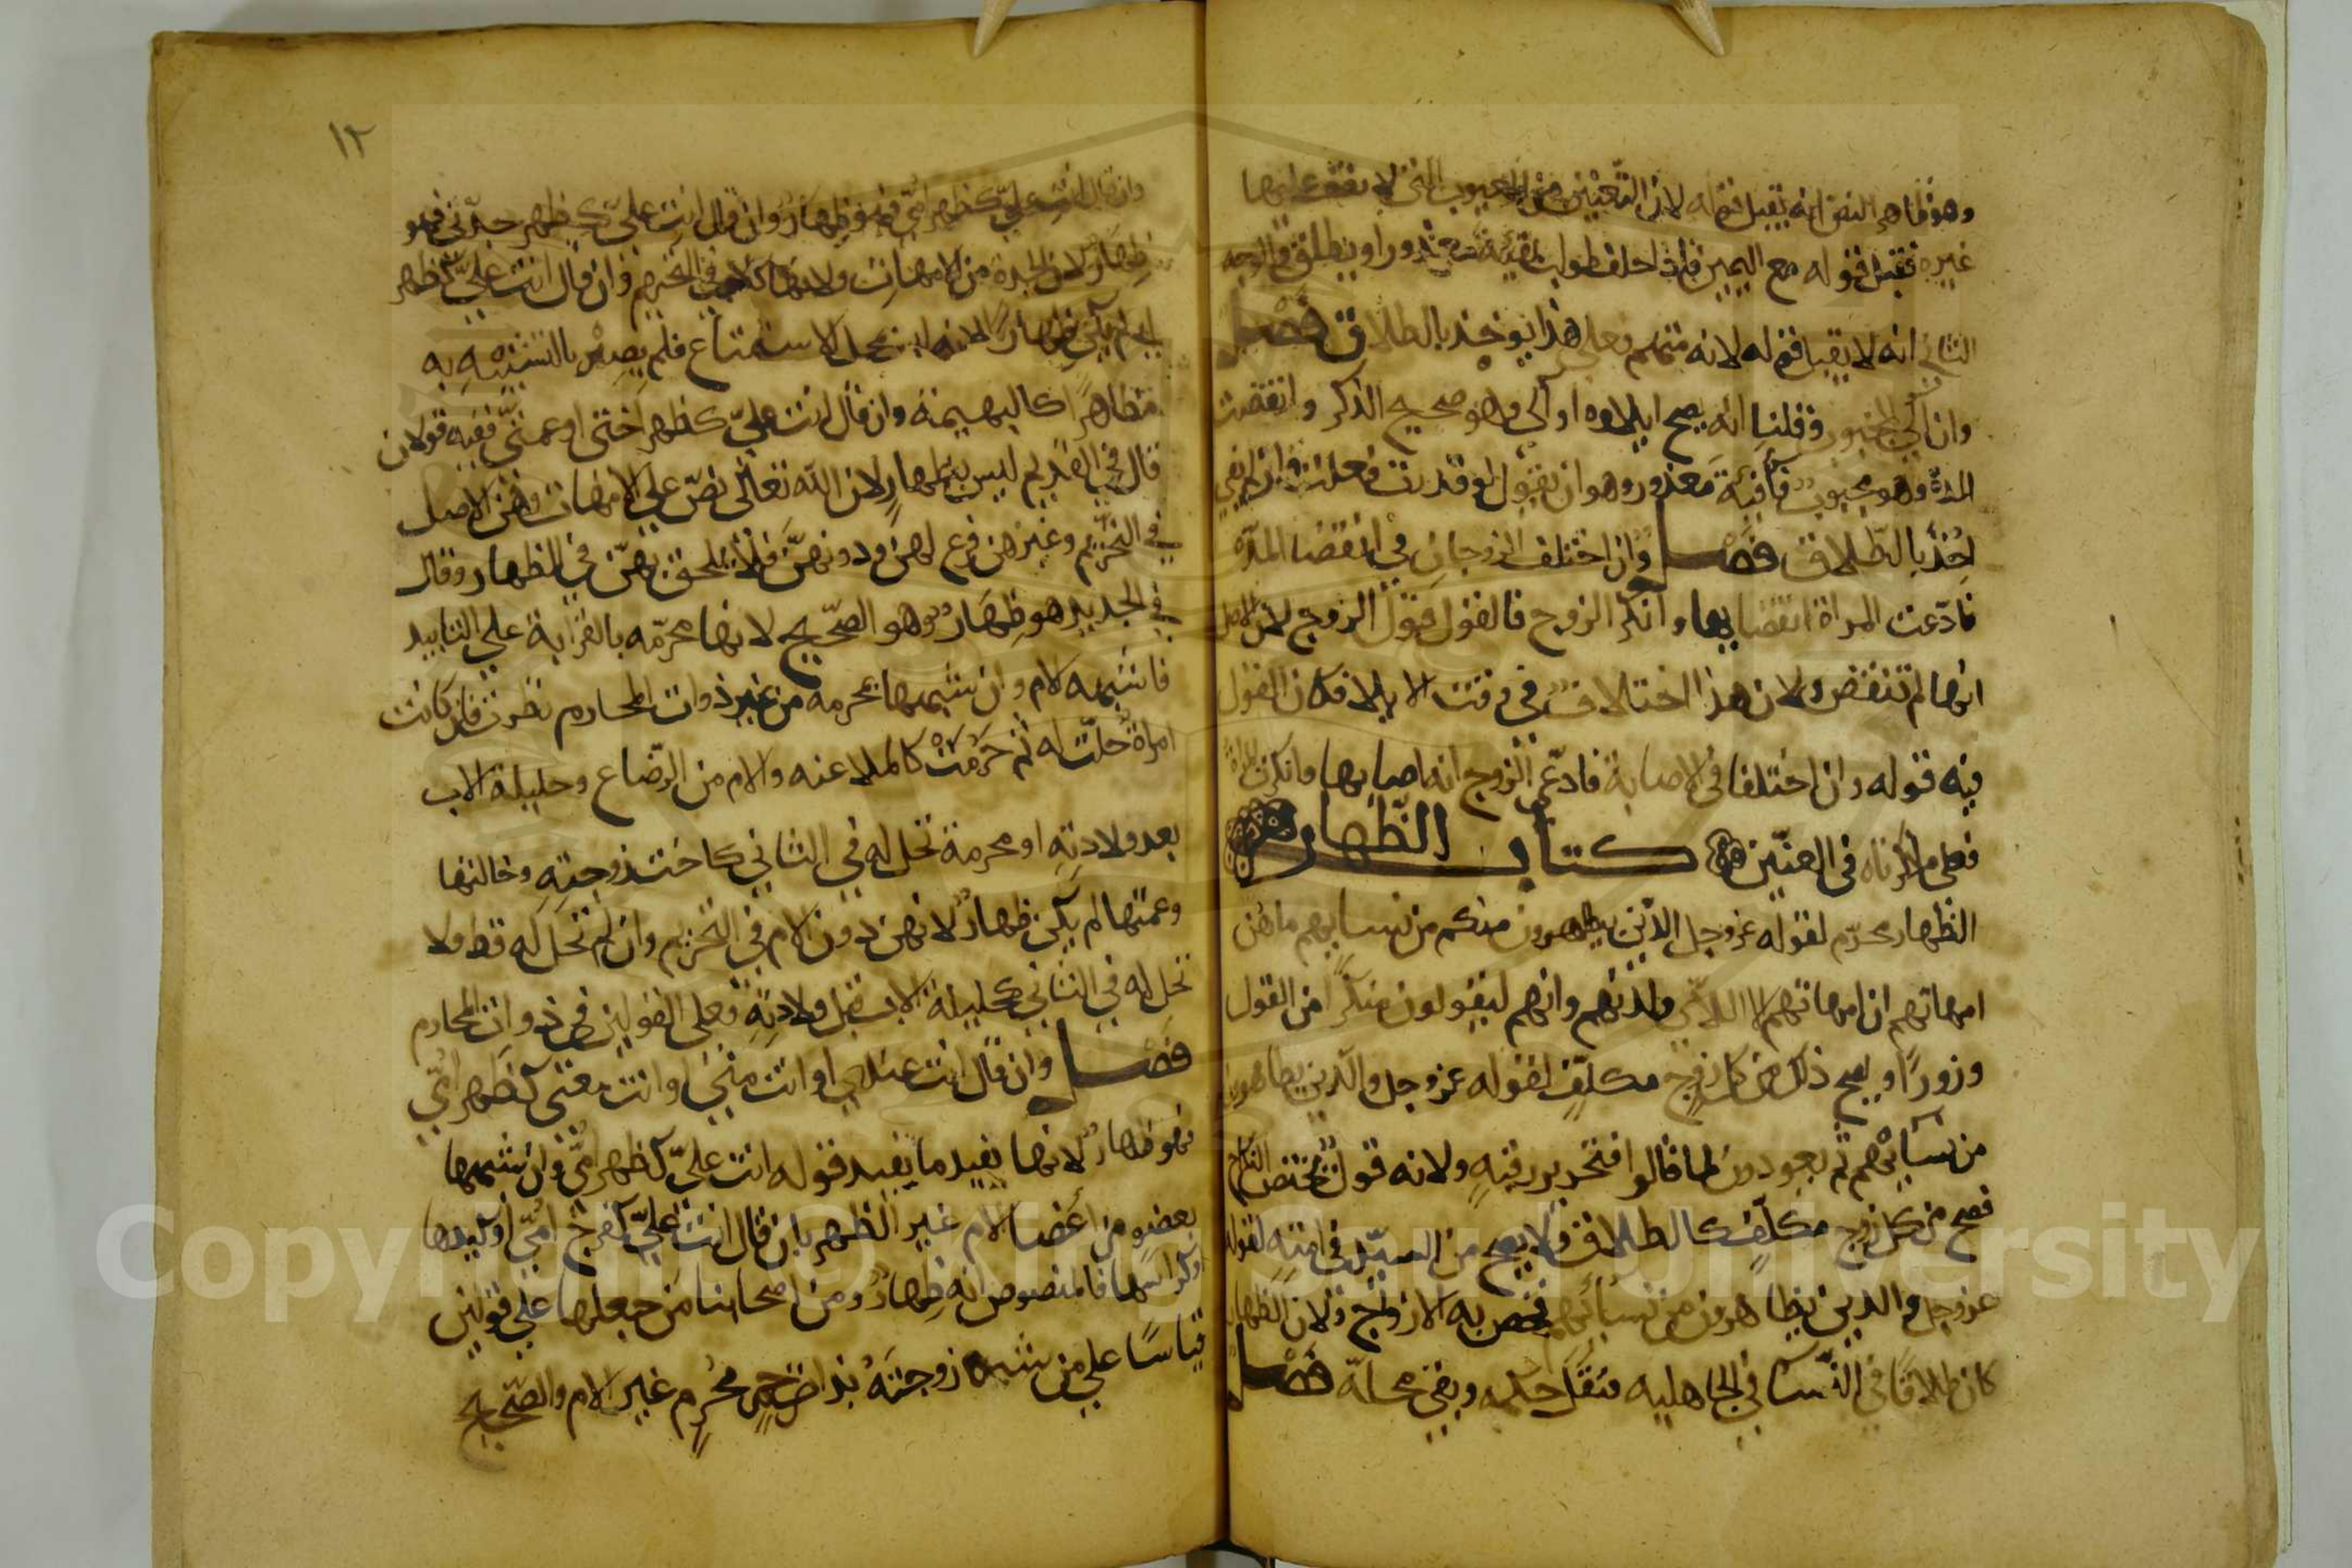 وهو ظاهر النص انه يقبل قوله لان التعنين من العيوب التي لا يقف عليها
غيره فقبل قوله مع اليمين فاذا حلف طولب بفيئة معذور او يطلق والوجه
الثاني انه لا يقبل قوله لانه متهم فعلى هذا يوخذ بالطلاق فصل
وان آلى المجبوب وقلنا انه يصح ايلاوه او آلى وهو صحيح الذكر وانقضت
المدة وهو مجبوب فاء فيئة معذور وهو ان يقول لو قدرت فعلت فان لم يفي
اخذ بالطلاق فصل وان اختلف الزوجان في انقضا المدة
فادعت المراة انقضايها وانكر الزوج فالقول قول الزوج لان الاصل
انها لم تنقض ولان هذا اختلاف في وقت الايلا فكان القول
فيه قوله وان اختلفا في الاصابة فادعى الزوج انه اصابها وانكرت المراة
فعلى ما ذكرناه في العنين كتاب الظهار
الظهار محرم لقوله عز وجل الذين يظهرون منكم من نسايهم ما هن
امهاتهم ان امهاتهم الا اللائي ولدنهم وانهم ليقولون منكرا من القول
وزورا ويصح ذلك من كل زوج مكلف لقوله عز وجل والذين يظاهرون
من نسائهم ثم يعودون لما قالوا فتحرير رقبة ولانه قول يختص النكاح
فصح من كل زوج مكلف كالطلاق ولا يصح من السيد في امته لقوله
عز وجل والذين يظاهرون من نسائهم فخص به الازواج ولان الظهار
كان طلاقا في النسا في الجاهليه فنقل حكمه وبقي محله فصل
١٢
وان قال انت علي كظهر امي فهو ظهار وان قال انت علي كظهر جدتي فهو
ظهار لان الجدة من الامهات ولانها كالام في التحريم وان قال انت علي كظهر
ابي لم يكن ظهارا لانه ليس بمحل الاستمتاع فلم يصر بالتشبيه به
مظاهرا كالبهيمة وان قال انت علي كظهر اختي او عمتي ففيه قولان
قال في القديم ليس بظهار لان الله تعالى نص على الامهات وهن الاصل
في التحريم وغيرهن فرع لهن ودونهن فلا يلحق بهن في الظهار وقال
في الجديد هو ظهار وهو الصحيح لانها محرمه بالقرابة على التابيد
فاشبهه الام وان شبهها بمحرمه من غير ذوات المحارم نظرت فان كانت
امراة حلت له ثم حرمت كالملاعنه والام من الرضاع وحليلة الاب
بعد ولادته او محرمة تحل له في الثاني كاخت زوجته وخالتها
وعمتها لم يكن ظهار لانهن دون الام في التحريم وان لم تحل له قط ولا
تحل له في الثاني كحليلة الاب قبل ولادته فعلى القولين في ذوات المحارم
فصل وان قال انت عندي او انت مني او انت معي كظهر امي
فهو ظهار لانها يفيد ما يفيد قوله انت علي كظهر امي وان شبهها
بعضو من اعضا الام غير الظهر بان قال انت علي كفرج امي او كيدها
او كراسها فالمنصوص انه ظهار ومن اصحابنا من جعلها على قولين
قياسا على من شبه زوجته بذات رحم محرم غير الام والصحيح
Copyright © King Saud University